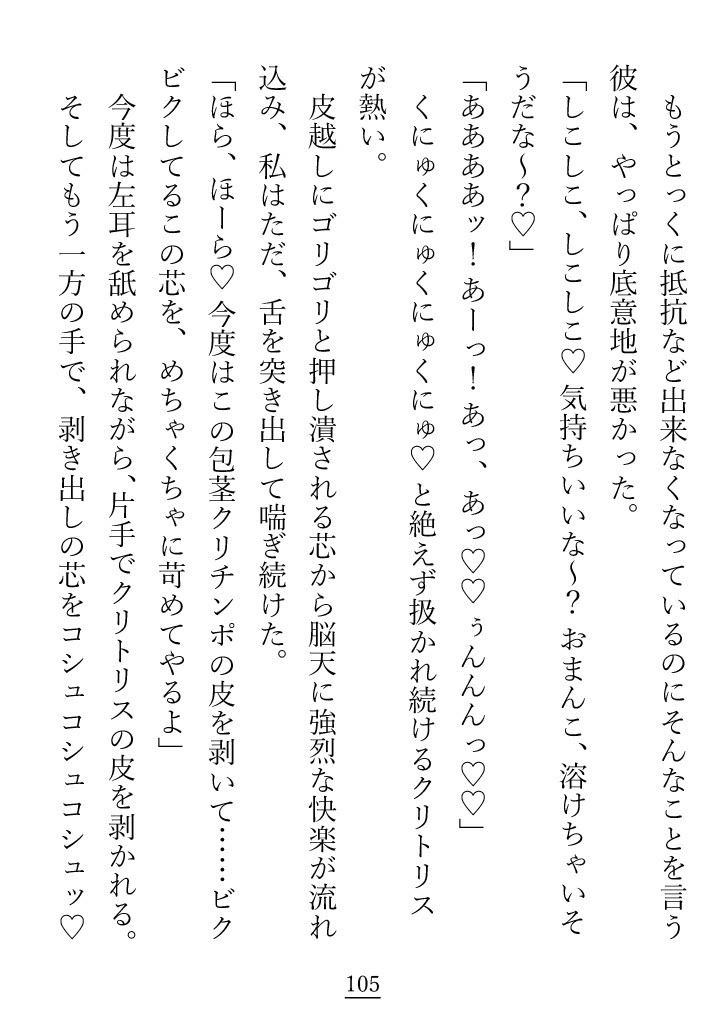 もうとっくに抵抗など出来なくなっているのにそんなことを言う
彼は、やっぱり底意地が悪かった。
「しこしこ、しこしこ♡気持ちいいな〜？おまんこ、溶けちゃいそ
うだな〜？♡」
「ああああッ！あーっ！あっ、あっ♡♡ぅんんんっ♡♡」
くにゅくにゅくにゅくにゅ♡と絶えず扱かれ続けるクリトリス
が熱い。
皮越しにゴリゴリと押し潰される芯から脳天に強烈な快楽が流れ
込み、私はただ、舌を突き出して喘ぎ続けた。
「ほら、ほーら♡今度はこの包茎クリチンポの皮を剥いて……ビク
ビクしてるこの芯を、めちゃくちゃに苛めてやるよ」
今度は左耳を舐められながら、片手でクリトリスの皮を剥かれる。
そしてもう一方の手で、剥き出しの芯をコシュコシュコシュッ♡
105